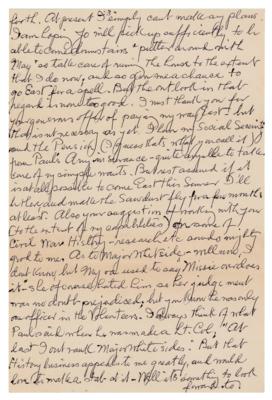 forth. At present I simply can't make any plans.
I am hoping Jo will pick up sufficiently to be
able to come downstairs & "putter around with
May" & take care of running the house to the extent
that I do now, and so give me a chance to
go East for a spell. But the outlook in that
regard is none too good. I must thank you for
your generous offer of paying my way East - but
that isn't necessary as yet. I have my Social Security
and the Pension (I guess that's what you call it)
from Paul's Army service - quite capable to take
care of my simple wants. But rest assured if it
is at all possible to come East this Summer I'll
be there and make the Sawdust fly for a few months
at least. Also your suggestion of working with you
(to the extent of my capabilities) on some of
Civil War History - research etc sounds mighty
good to me. As to Major Whiteside - well now, I
don't know, but May used to say Missie overdoes
it - she of course hated him so her judgment
was no doubt prejudiced, but you know he was only
an officer in the Volunteers. I always think of what
Paul said when he was made a Lt. Col, "At
last I out rank Major Whitesides! But that
History business appeals to me greatly, and would
love to make a stab at it - Well it's something to look
forward to.